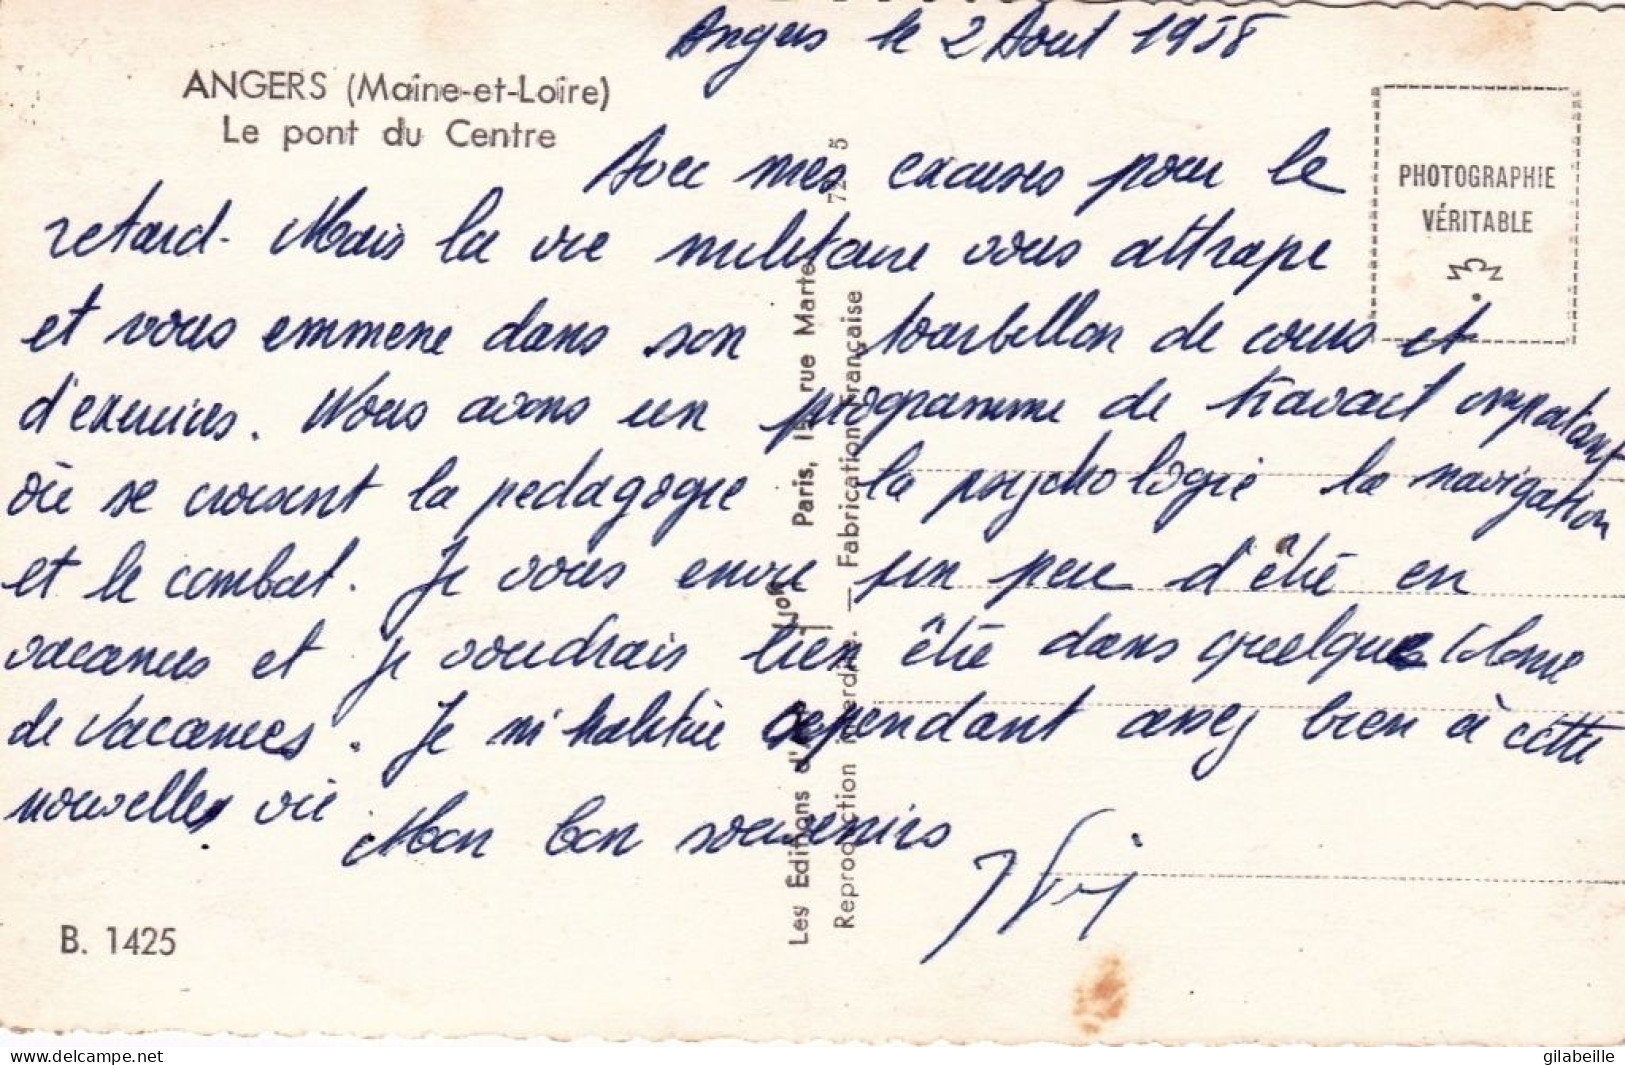 Angers le 2 Aout 1958
ANGERS (Maine-et-Loire)
Le pont du Centre
PHOTOGRAPHIE
VÉRITABLE
Avec mes excuses pour le
retard. Mais la vie militaire vous attrape
et vous emmene dans son tourbillon de cours et
d'exercices. Nous avons un programme de travail
où se croisent la pedagogie la psychologie la navigation
et le combat. Je vous envie un peu d'être en
vacances et je voudrais bien être dans quelque Colonie
de Vacances. Je m'habitue cependant assez bien à cette
nouvelle vie
Mon bon souvenirs
Les Editions d'Art Paris, 15, rue Martel
Reproduction interdite. — Fabrication Française
B. 1425
gilabeille
www.delcampe.net